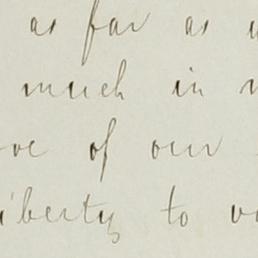 as far as
much in
of our
liberty to